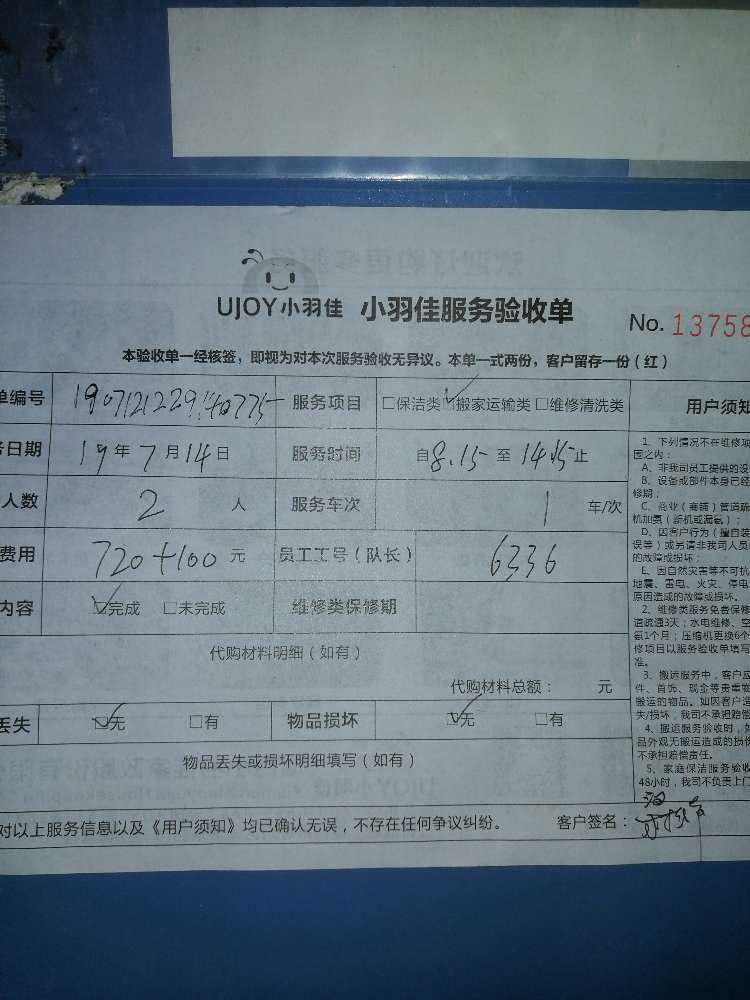 UJOY小羽佳 小羽佳服务验收单 No. 13758
本验收单一经核签，即视为对本次服务验收无异议。本单一式两份，客户留存一份（红）
单编号 服务项目 □保洁类 ☑搬家运输类 □维修清洗类 用户须知
务日期 19年7月14日 服务时间 自8.15至14.15止
人数 2 人 服务车次 1 车/次
费用 720+100 元 员工工号（队长） 6336
内容 ☑完成 □未完成 维修类保修期
代购材料明细（如有）
代购材料总额： 元
丢失 ☑无 □有 物品损坏 ☑无 □有
物品丢失或损坏明细填写（如有）
对以上服务信息以及《用户须知》均已确认无误，不存在任何争议纠纷。 客户签名：
1、下列情况不在维修项
围之内：
A、非我司员工提供的设
B、设备或部件本身已经
修期；
C、商业（商铺）管道疏
机加氨（新机或漏氨）；
D、因客户行为（擅自装
误等）或另请非我司人员
的故障或损坏；
E、因自然灾害等不可抗
地震、雷电、火灾、停电
原因造成的故障或损坏。
2、维修类服务免费保修
道疏通3天；水电维修、空
氨1个月；压缩机更换6个
修项目以服务验收单填写
准。
3、搬运服务中，客户应
件、首饰、现金等贵重物
搬运的物品。如因客户造
失/损坏，我司不承担赔偿
4、搬运服务验收时，如
品外观无搬运造成的损伤
不承担赔偿责任。
5、家庭保洁服务验收
48小时，我司不负责上门